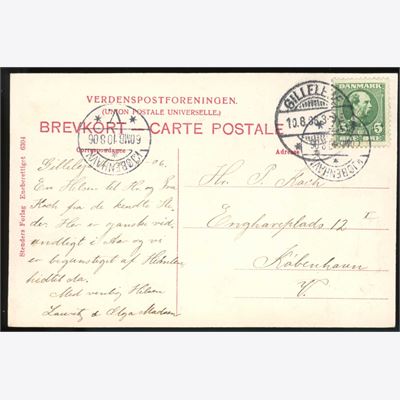 VERDENSPOSTFORENINGEN.
(UNION POSTALE UNIVERSELLE.)
BREVKORT — CARTE POSTALE
Correspondance
Adresse
Stenders Forlag Eneberettiget 6304
GILLELEJE
10.8.
DANMARK
5 5
KJØBENHAVN
6.OMB 10.8.06
KJØBENHAVN
Gilleleje 06.
En Hilsen til Hr. og Fru
Koch fra de kendte Ste-
der. Her er ganske vid-
underligt i Aar og vi
er begunstiget af
hidtil da.
Med venlig Hilsen
Lauritz & Olga Madsen
Hr. P. Koch
Enghaveplads 12
København
V.